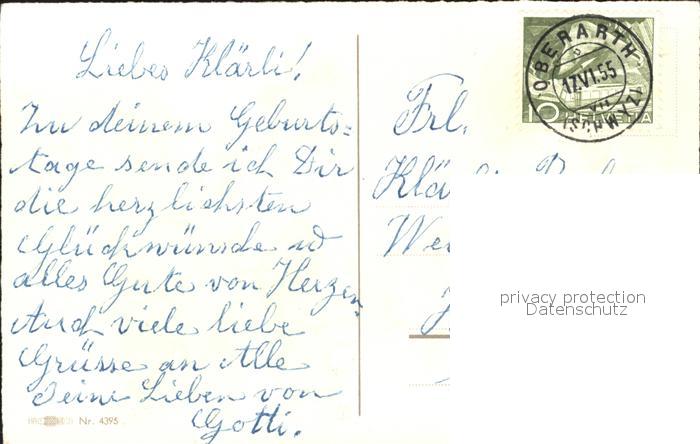 Liebes Klärli!
Zu deinem Geburts=
tage sende ich Dir
die herzlichsten
Glückwünsche u
alles Gute von Herzen.
Auch viele liebe
Grüsse an Alle
deine Lieben von
Gotti.
Nr. 4395
OBERARTH
17.VI.55
(SCHWYZ)
10 HELVETIA
Frl.
Klä
We
privacy protection
Datenschutz